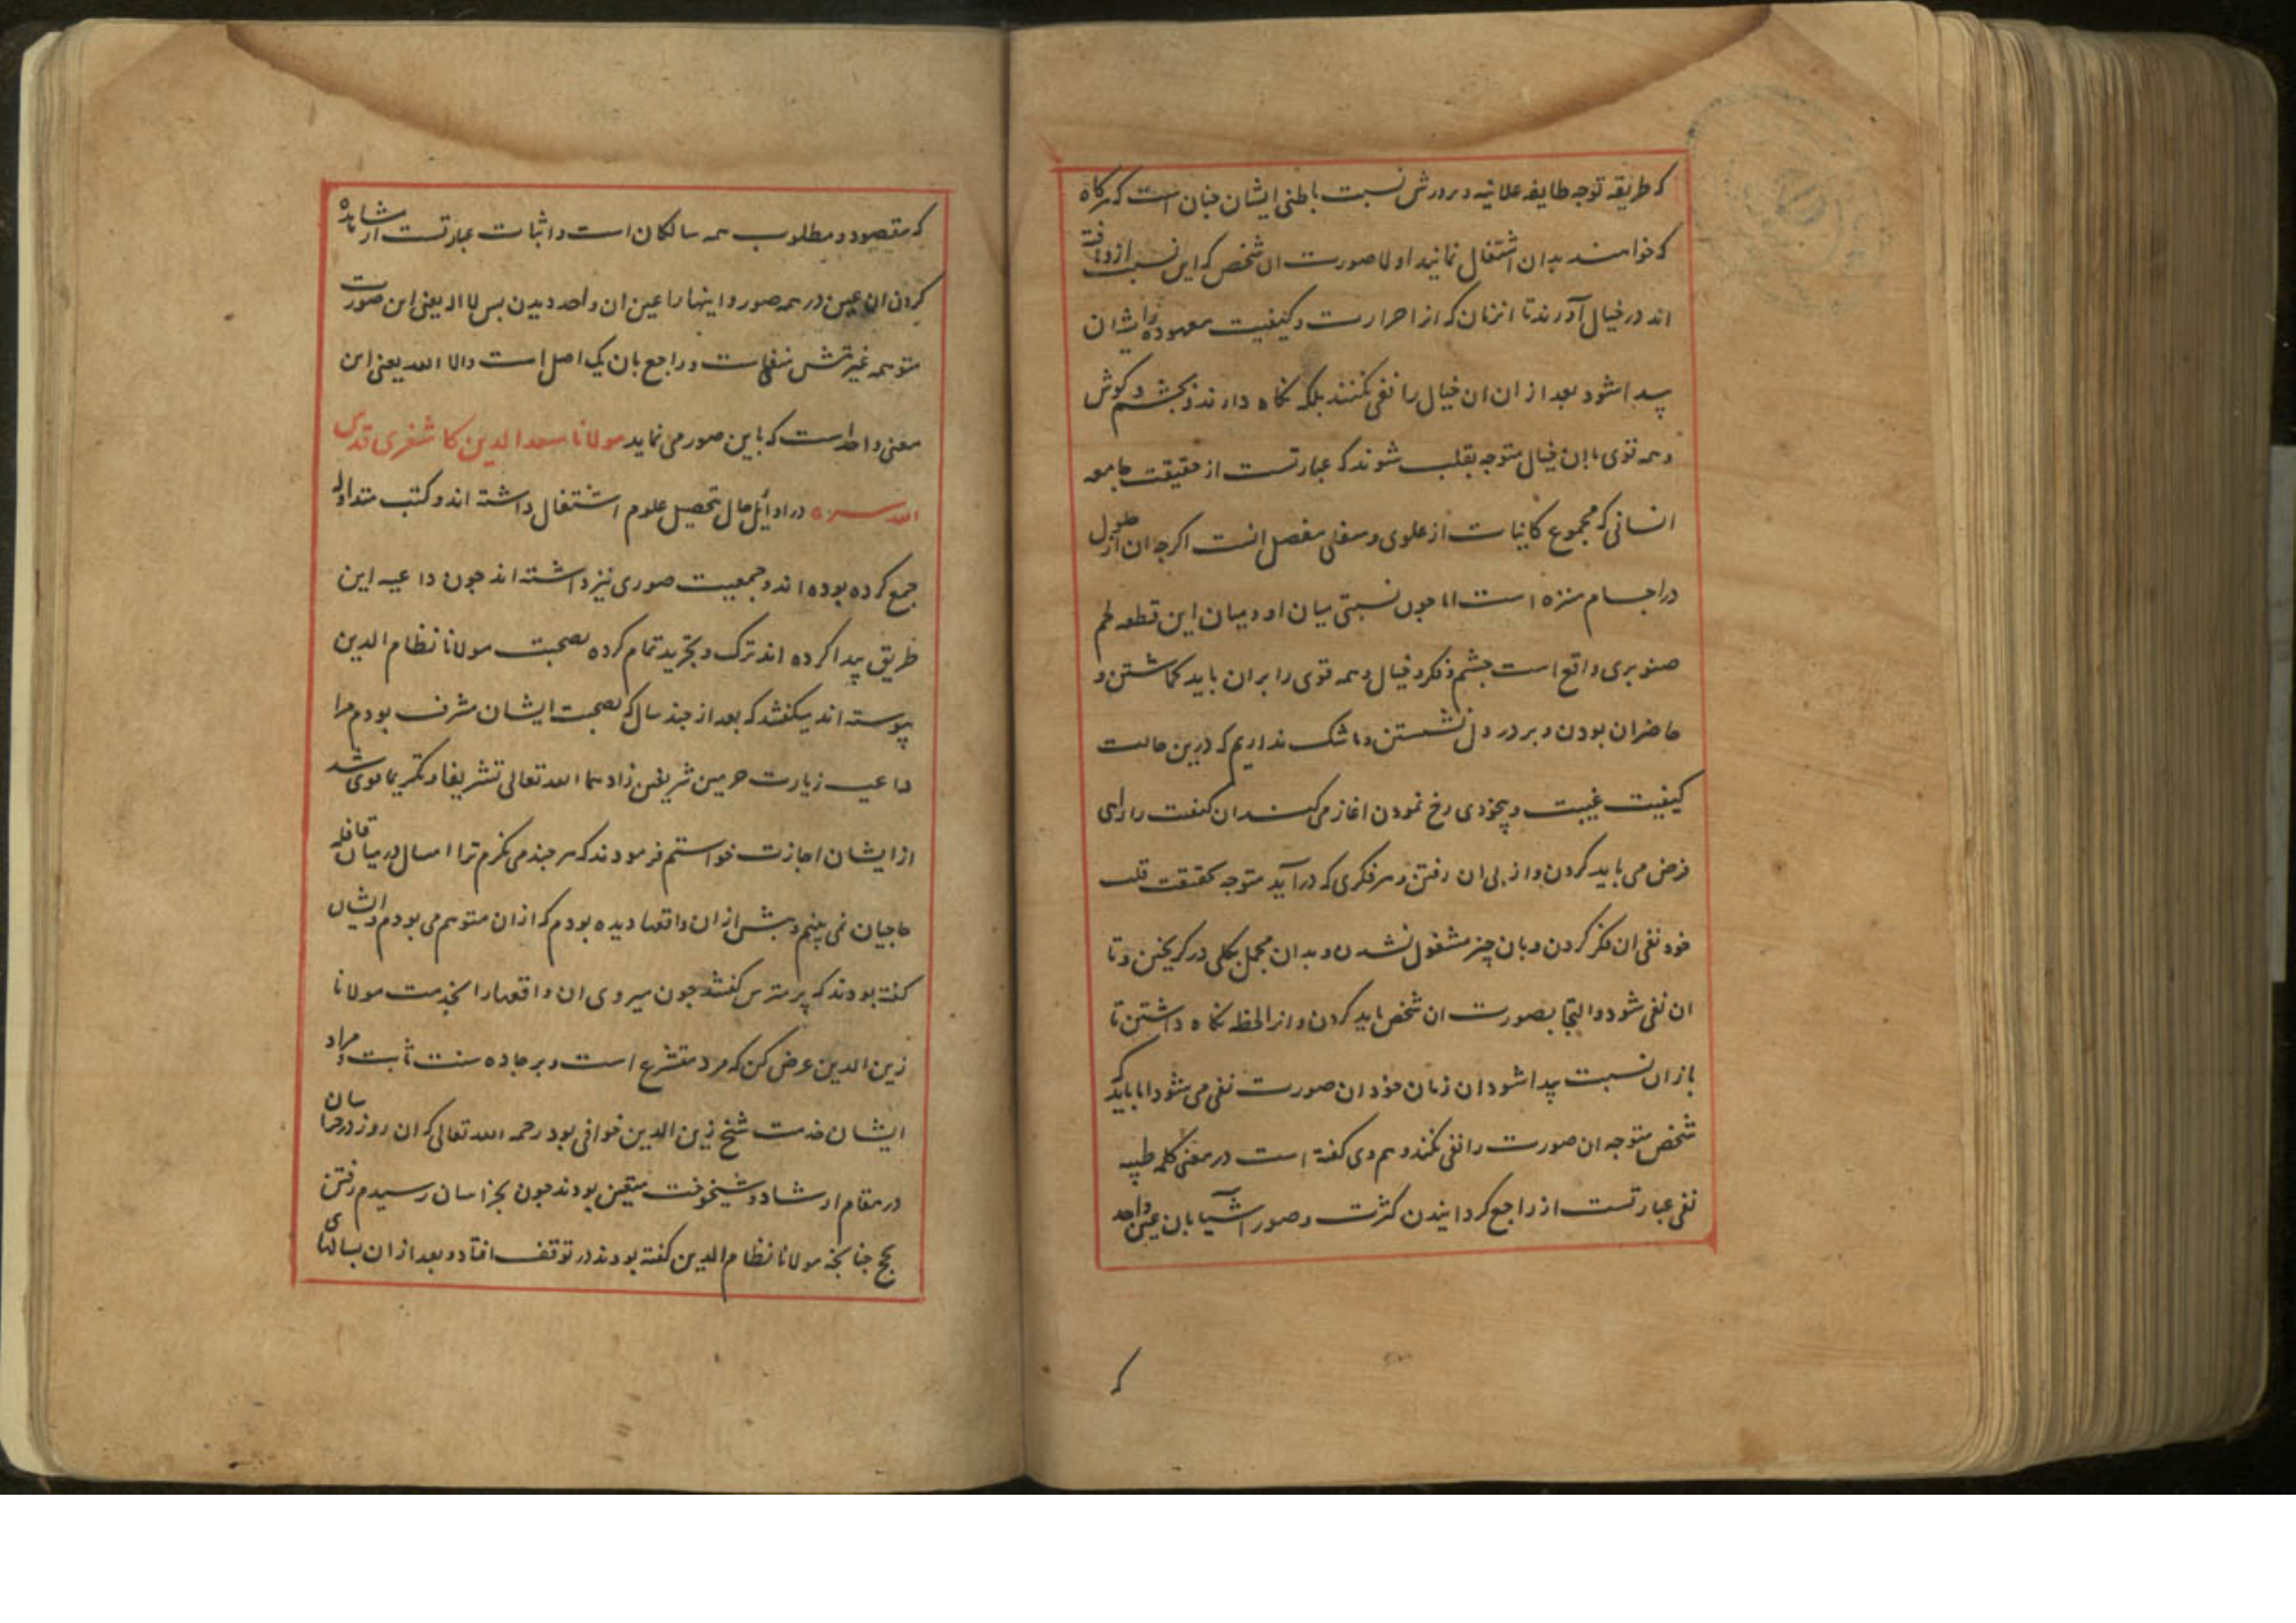 که طریقه توجه طایفه علائیه و پرورش نسبت باطنی ایشان چنان است که هرکاه
که خواهند بدان اشتغال نمایند اولا صورت ان شخص که این نسبت ازو یافته
اند در خیال آورند تا انزمان که از احرارت و کیفیت معهوده ایشان
پیدا شود بعد از ان ان خیال را نفی نکنند بلکه نکاه دارند و بچشم و کوش
و همه قوی با ان خیال متوجه بقلب شوند که عبارتست از حقیقت جامعه
انسانی که مجموع کاینات از علوی و سفلی مفصل انست اکرچه ان از حلول
در اجسام منزه است اما چون نسبتی میان او و میان این قطعه لحم
صنوبری واقع است چشم و فکر و خیال و همه قوی را بران باید کماشتن و
حاضران بودن و بر در دل نشستن و ما شک نداریم که درین حالت
کیفیت غیبت و بیخودی رخ نمودن اغاز می کند ان کیفیت را راهی
فرض می باید کردن و از پی ان رفتن و هر فکری که درآید متوجه بحقیقت قلب
خود نفی ان فکر کردن و بان چیز مشغول نشدن و بدان مجمل بکلی در کریختن و تا
ان نفی شود و التجا بصورت ان شخص باید کردن و انرا لحظه نکاه داشتن تا
باز ان نسبت پیدا شود ان زمان خود ان صورت نفی می شود اما باید که
شخص متوجه ان صورت را نفی نکند و هم وی کفته است در معنی کلمه طیبه
نفی عبارتست از راجع کردانیدن کثرت و صور اشیا بان عین واحد
که
که مقصود و مطلوب همه سالکان است و اثبات عبارتست از مشاهده
کردن ان عین در همه صور و اینها را عین ان واحد دیدن پس لا اله یعنی این صورت
متوهمه غیرتش منفیست و راجع بان یک اصل است و الا الله یعنی این
معنی واحد است که باین صور می نماید مولانا سعد الدین کاشغری قدس
الله سره در اوایل حال تحصیل علوم اشتغال داشته اند و کتب متداوله
جمع کرده بوده اند و جمعیت صوری نیز داشته اند چون داعیه این
طریق پیدا کرده اند ترک و تجرید تمام کرده بصحبت مولانا نظام الدین
پیوسته اند میکفتند که بعد از چند سال که بصحبت ایشان مشرف بودم مرا
داعیه زیارت حرمین شریفین زادهما الله تعالی تشریفا و تکریما قوی شد
از ایشان اجازت خواستم فرمودند که هر چند می نکرم ترا امسال در میان قافله
حاجیان نمی بینم و پیش از ان واقعها دیده بودم که از ان متوهم می بودم و ایشان
کفته بودند که مترس کفتند چون میروی ان واقعها را بخدمت مولانا
زین الدین عرض کن که مرد متشرع است و بر جاده سنت ثابت و مراد
ایشان خدمت شیخ زین الدین خوافی بود رحمه الله تعالی که ان روز در خراسان
در مقام ارشاد و شیخوخت متعین بودند چون بخراسان رسیدم رفتن
بحج چنانچه مولانا نظام الدین کفته بودند در توقف افتاد و بعد از ان بسالهای